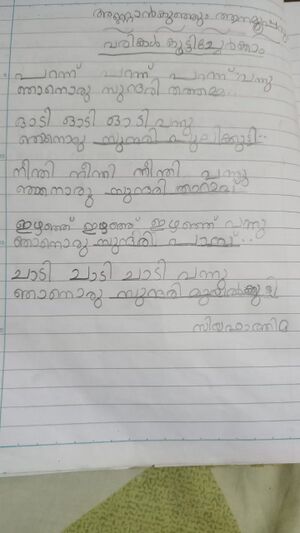 അണ്ണാൻകുഞ്ഞും ആനമൂപ്പനും
വരികൾ കൂട്ടിച്ചേർക്കാം
പറന്ന് പറന്ന് പറന്ന് വന്നു
ഞാനൊരു സുന്ദരി തത്തമ്മ..
ഓടി ഓടി ഓടി വന്നു
ഞാനൊരു സുന്ദരി പുലിക്കുട്ടി..
നീന്തി നീന്തി നീന്തി വന്നു
ഞാനൊരു സുന്ദരി താറാമ്മ
ഇഴഞ്ഞ് ഇഴഞ്ഞ് ഇഴഞ്ഞ് വന്നു
ഞാനൊരു സുന്ദരി പാമ്പ്..
ചാടി ചാടി ചാടി വന്നു
ഞാനൊരു സുന്ദരി മുയൽക്കുട്ടി
സിയഫാത്തിമ